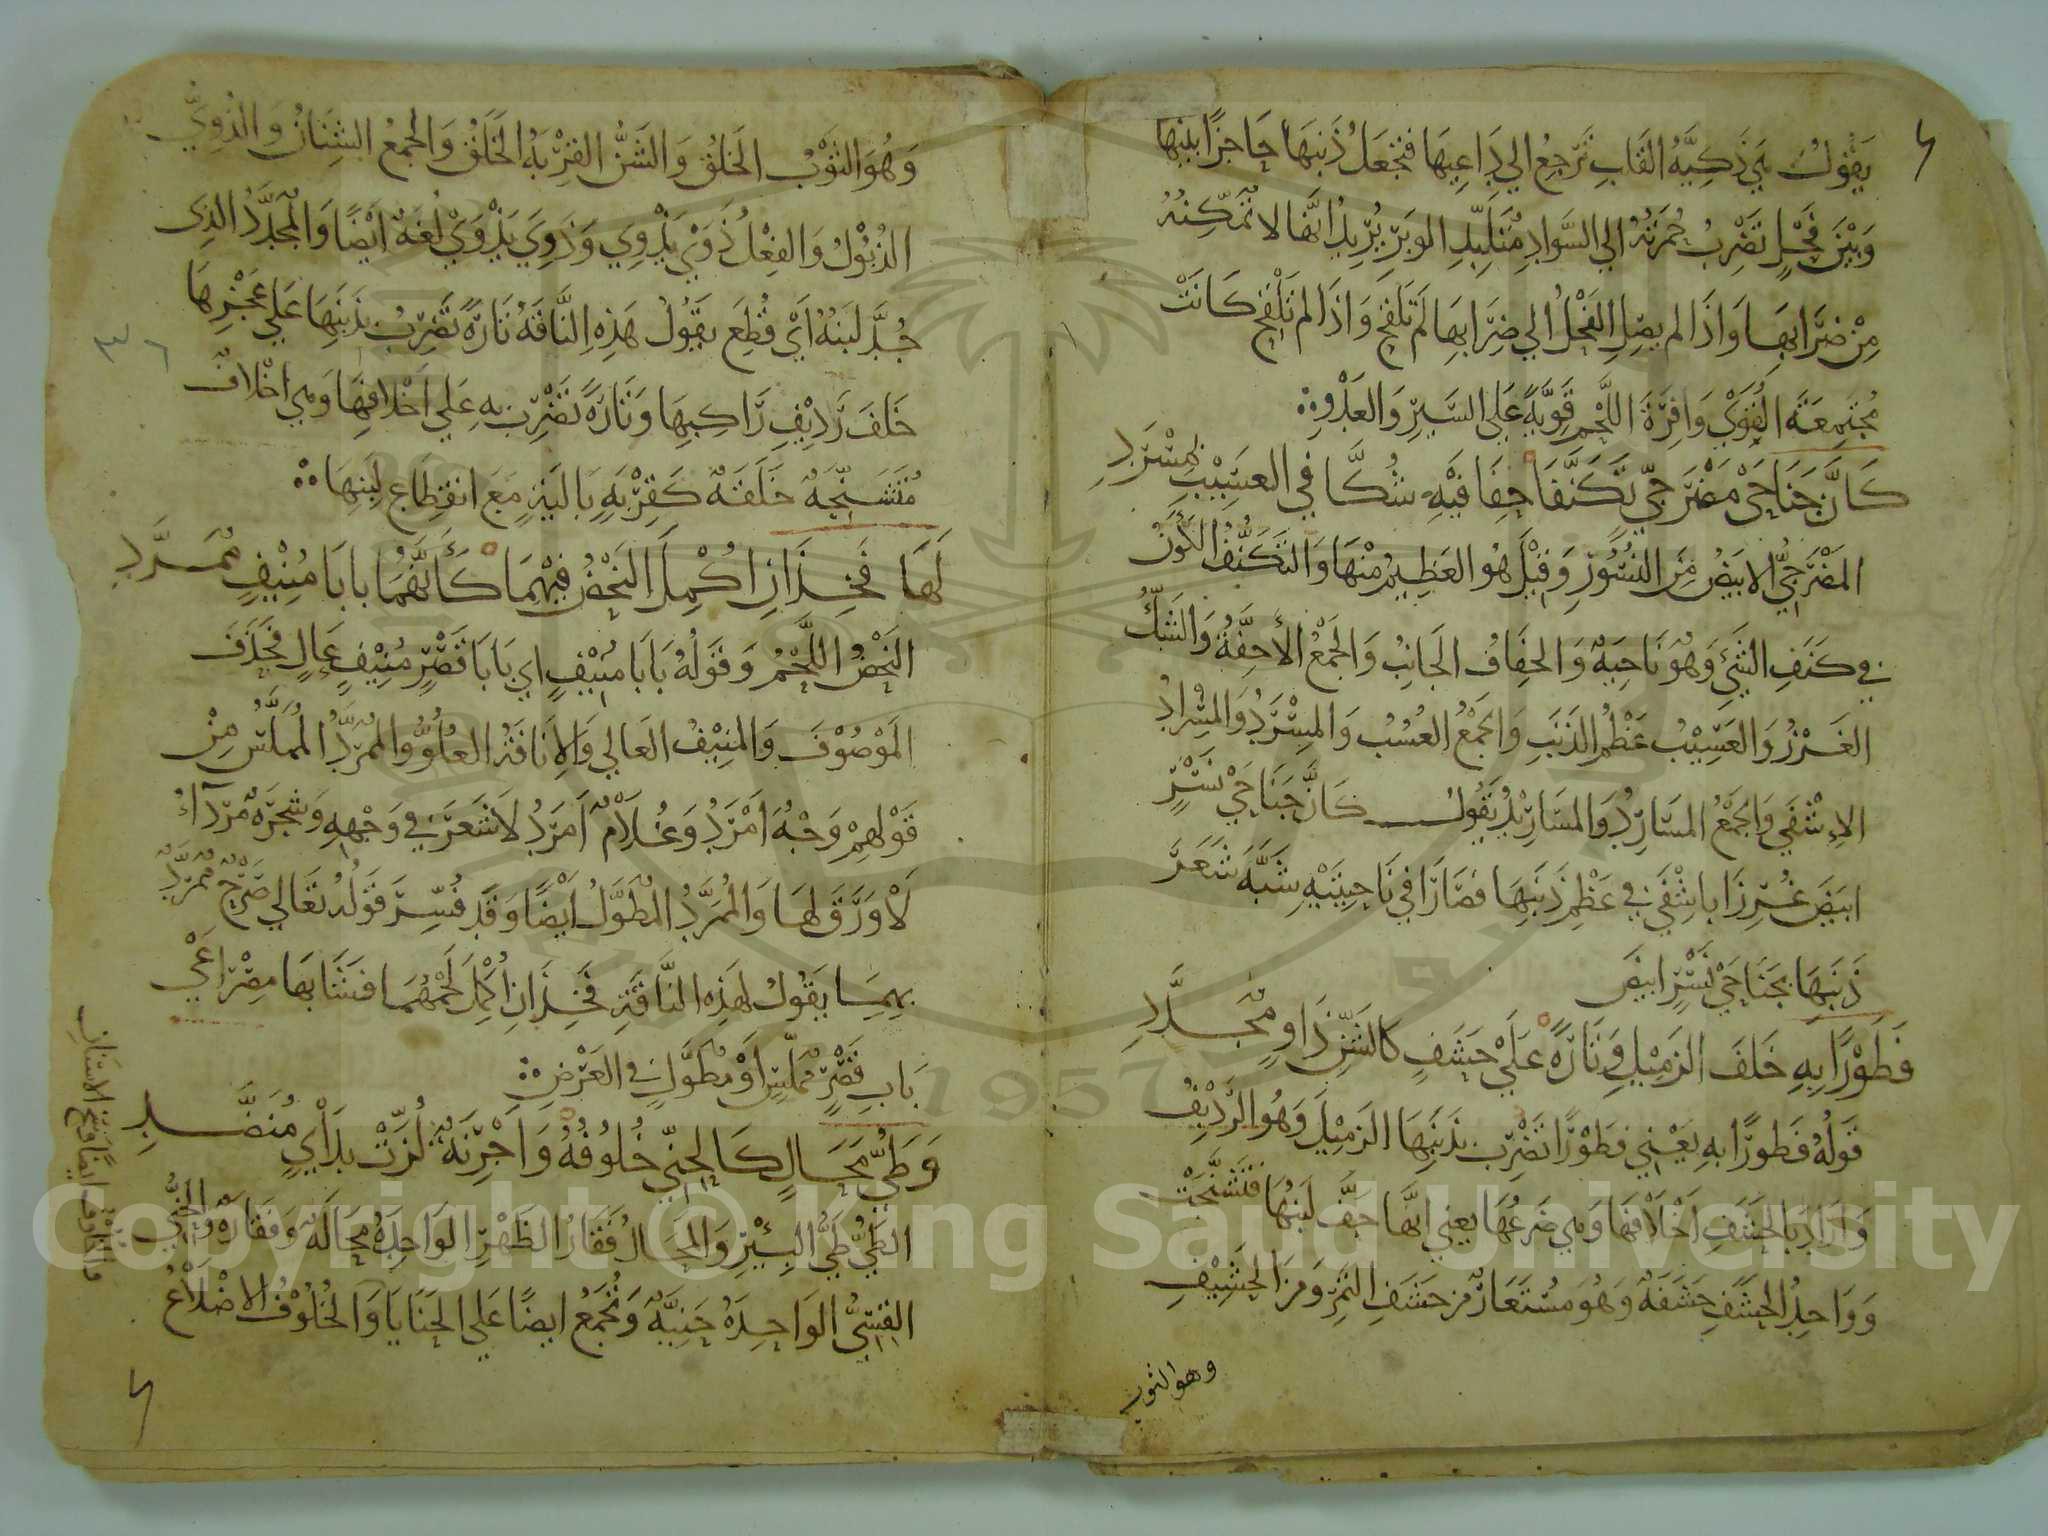 يَقُولُ هِيَ ذَكِيَّةُ القَلْبِ تَرْجِعُ الي دَاعِيهَا فتجعَلُ ذَنبَهَا حَاجِزًا بينهَا
وَبَيْنَ فَحْلٍ تَضْرِبُ حُمْرَتُهُ الي السَّوادِ مُتَلَبِّدِ الوَبَرِ يُرِيدُ انَّهَا لا تُمَكِّنُهُ
مِنْ ضِرَابِهَا وَاذَا لم يصِلِ الفَحْلُ الي ضِرَابِهَا لَم تَلقَح وَاذَا لم تَلْقَح كَانَتْ
مُجتَمِعَةَ القُوَيْ وَافِرَةَ اللَّحْمِ قَوِيَّةً عَلي السَّيرِ وَالعَدْوِ
كَاَنَّ جَنَاحَيْ مَضْرَحِيٍّ تَكَنَّفَا حِفَافَيْهِ شُكَّا في العَسِيْبِ بِمِسْرَدِ
المَضْرَحِيُّ الابيَضُ مِنَ النُّسُوْرِ وَقِيْلَ هُو العَظِيمُ مِنْهَا وَالتَكَنُّفُ الكَوْنُ
في كَنَفِ الشَّيْءِ وَهُوَ نَاحِيَتُهُ وَالحِفَافُ الجَانِبُ وَالجَمْعُ الأَحِفَّةُ وَالشَّكُّ
الغَرْزُ وَالعَسِيْبُ عَظْمُ الذَنَبِ وَالجَمْعُ العُسُبُ وَالمِسْرَدُ وَالمِسْرَادُ
الاِشْفَي وَالجَمْعُ المَسَارِدُ وَالمَسَارِيْدُ يَقُولُ كَانَّ جَنَاحَي نَسْرٍ
ابيَضَ غُرِزَا باشْفَي في عَظْمِ ذَنَبِهَا فَصَارَا في نَاحِيَتَيْهِ شَبَّهَ شَعَرَ
ذَنَبِهَا بِجَنَاحَيْ نَسْرٍ ابيَضَ
فَطَوْرًا بِهِ خَلفَ الزَمِيْلِ وَتَارَةً عَلَيْ حَشَفٍ كالشَنِّ ذَاوٍ مُجَدَّدِ
قَولُهُ فَطَوْرًا بِهِ يَعْنِي فطَوْرًا تَضْرِبُ بذَنَبِهَا الزَمِيْلَ وَهُو الرَدِيْفُ
وَارَادَ بالحَشَفِ اَخْلَافَهَا وَهِيَ ضَرعُهَا يعني انَّهَا جَفَّ لَبنُهَا فَتَشَنَّجَتْ
وَوَاحِدُ الحَشَفِ حَشَفَةٌ وَهُوَ مُسْتَعَارٌ مِن حَشَفِ التَمْرِ وَمِنَ الحَشِيْفِ
وهو الثوب
وَهُوَ الثَوْبُ الخَلَقُ وَالشَنُّ القِرْبَةُ الخَلَقُ وَالجَمعُ الشِنَانُ وَالذُوِيُّ
الذُبُوْلُ وَالفِعْلُ ذَوَيْ يَذْوِي وَذَوِيَ يَذْوَيْ لُغَةٌ اَيْضًا وَالمُجَدَّدُ الذِى
جُدَّ لَبَنُهُ اَيْ قُطِعَ يقُولُ هَذِهِ النَّاقَةُ تَارَةً تَضرِبُ بذَنَبِهَا عَلي عَجُزِهَا
خَلفَ رَدِيْفِ رَاكِبِهَا وَتَارَةً تَضْرِبُ بهِ عَلي اَخْلافِهَا وَهِي اخْلافٌ
مُتَشَنِّجَةٌ خَلَقَةٌ كَقِرْبَةٍ بَالِيَةٍ مَعَ انقِطَاعِ لَبَنِهَا
لَهَا فَخِذَانِ اُكْمِلَ النَحْضُ فِيْهِمَا كَاَنَّهُمَا بابَا مُنِيْفٍ مُمَرَّدِ
النَحْضُ اللَّحْمُ وَقَوْلُهُ بَابَا مُنِيْفٍ اي بَابَا قَصْرٍ مُنِيْفٍ عَالٍ فحَذَفَ
المَوْصُوْفَ وَالمُنِيْفُ العَالي وَالاِنَافَةُ العُلُوُّ وَالمُمَرَّدُ المُمَلَّسُ مِنْ
قَوْلهِمْ وَجْهٌ اَمْرَدُ وَغُلَامٌ اَمرَدُ لَا شَعَرَ في وَجْهِهِ وَشَجَرَةٌ مَرْدَآءُ
لَا وَرَقَ لهَا وَالمُمَرَّدُ المُطَوَّلُ ايْضًا وَقَد فُسِّرَ قَوْلُهُ تَعَالي صَرْحٌ مُمَرَّدٌ
بِهِمَا يَقُولُ لهَذِه النَّاقَةِ فَخِذَانِ اُكْمِلَ لَحْمُهُمَا فشَابَهَا مِصْرَاعَيْ
بَابِ قَصْرٍ مُمَلَّسٍ اَوْ مُطَوَّلٍ في العَرْضِ
وَطَيُّ مَحَالٍ كَالحَنِيِّ خُلُوفُهُ وَاَجْرِنَةٌ لُزَّتْ بدَأْيٍ مُنَضَّدِ
الطَيُّ طَيُّ البِئْرِ وَالمَحَالُ فَقَارُ الظَهْرِ الوَاحِدَةُ مَحَالَةٌ وَفَقَارَةٌ وَالحَنِيُّ
القِسِيُّ الوَاحِدَةُ حَنِيَّةٌ وَتُجمَعُ ايضًا عَلي الحَنَايَا وَالخُلُوْفُ الاضْلَاعُ